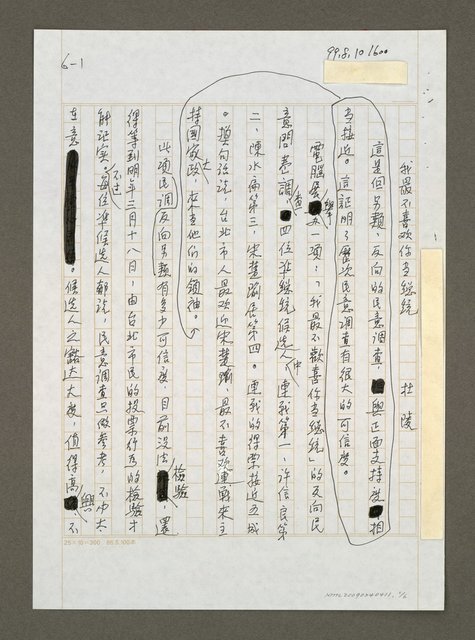 6-1
99.8.10 1600
我最不喜欢你当總统
杜陵
這是個另類、反向的民意調查,與正面支持度相
当接近。這証明了歷次民意調查有很大的可信度。
電腦選舉
一項:「我最不歡喜你當總統」的反向民
意問卷調查,四位準總統候選人中,連戰第一、許信良第
二、陳水扁第三,宋楚瑜居第四。連戰的得票接近五成
。換句話說,台北市人最欢迎宋楚瑜,最不喜欢連戰來主
持國家大政,來当他们的領袖。
此項民調反向另類有多少可信度,目前没法檢驗,還
得等到明年三月十八日,由台北市民的投票行為的檢驗才
能証实。不过每位準候選人都說,民意調查只做參考,不必太
在意。候選人之豁达大度,值得高興,不
25×10=300 86.8.100本
NMTL20090240411, 1/6